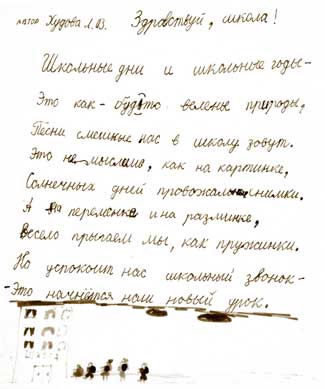 автор Худова Л. 13. Здравствуй, школа!
Школьные дни и школьные годы -
Это как-будто веленье природы,
Песни смешные нас в школу зовут.
Это не мыслимо, как на картинке,
Солнечных дней провожал снимки.
А на переменке и на разминке,
Весело прыгаем мы, как пружинки.
Но успокоит нас школьный звонок -
-Это начнётся наш новый урок.